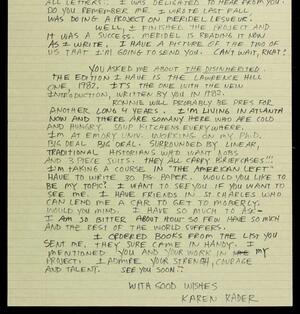 ALL LETTERS. I WAS DELIGHTED TO HEAR FROM YOU.
DO YOU REMEMBER ME. I WROTE LAST FALL
WAS DOING A PROJECT ON MERIDEL LESUEUR.
WELL, I FINISHED THE PROJECT AND
IT WAS A SUCCESS. MERIDEL IS READING IT NOW
AS I WRITE. I HAVE A PICTURE OF THE TWO OF
US THAT I'M GOING TO SEND YOU. CAN'T WAIT, RIGHT!
YOU ASKED ME ABOUT THE DISINHERITED
THE EDITION I HAVE IS THE LAWRENCE HILL
ONE, 1982. IT'S THE ONE WITH THE NEW
INTRODUCTION, WRITTEN BY YOU IN 1982.
RONNIE WILL PROBABLY BE PRES FOR
ANOTHER LONG 4 YEARS. I'M LIVING IN ATLANTA
NOW AND THERE ARE SO MANY HERE WHO ARE COLD
AND HUNGRY. SOUP KITCHENS EVERYWHERE.
I'M AT EMORY UNIV. WORKING ON MY PH.D.
BIG DEAL BIG DEAL. SURROUNDED BY LINEAR,
TRADITIONAL HISTORIANS WHO WANT JOBS
AND 3 PIECE SUITS. THEY ALL CARRY BRIEFCASES!!!
I'M TAKING A COURSE IN "THE AMERICAN LEFT"
HAVE TO WRITE 30 PG. PAPER. WOULD YOU LIKE TO
BE MY TOPIC? I WANT TO SEE YOU IF YOU WANT TO
SEE ME. I HAVE FRIENDS IN ST CHARLES WHO
CAN LEND ME A CAR TO GET TO MOBERLY.
WOULD YOU MIND. I HAVE SO MUCH TO ASK—
I AM SO BITTER ABOUT HOW SO FEW HAVE SO MUCH
AND THE REST OF THE WORLD SUFFERS.
I ORDERED BOOKS FROM THE LIST YOU
SENT ME. THEY SURE CAME IN HANDY. I
MENTIONED YOU AND YOUR WORK IN MY
PROJECT. I ADMIRE YOUR STRENGTH, COURAGE
AND TALENT. SEE YOU SOON?
WITH GOOD WISHES
KAREN RADER